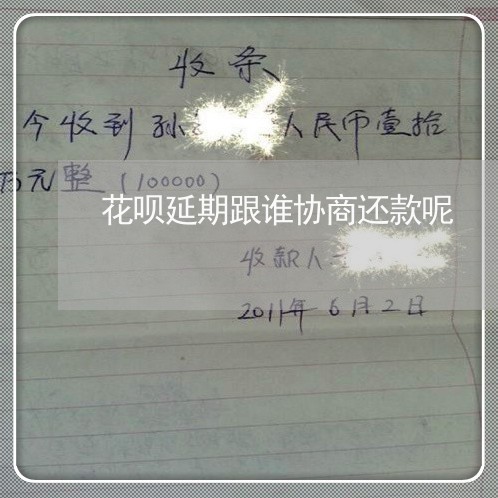 收条
今收到孙 人民币壹拾
万元整（100000）
花呗延期跟谁协商还款呢
收款人
2011年6月2日